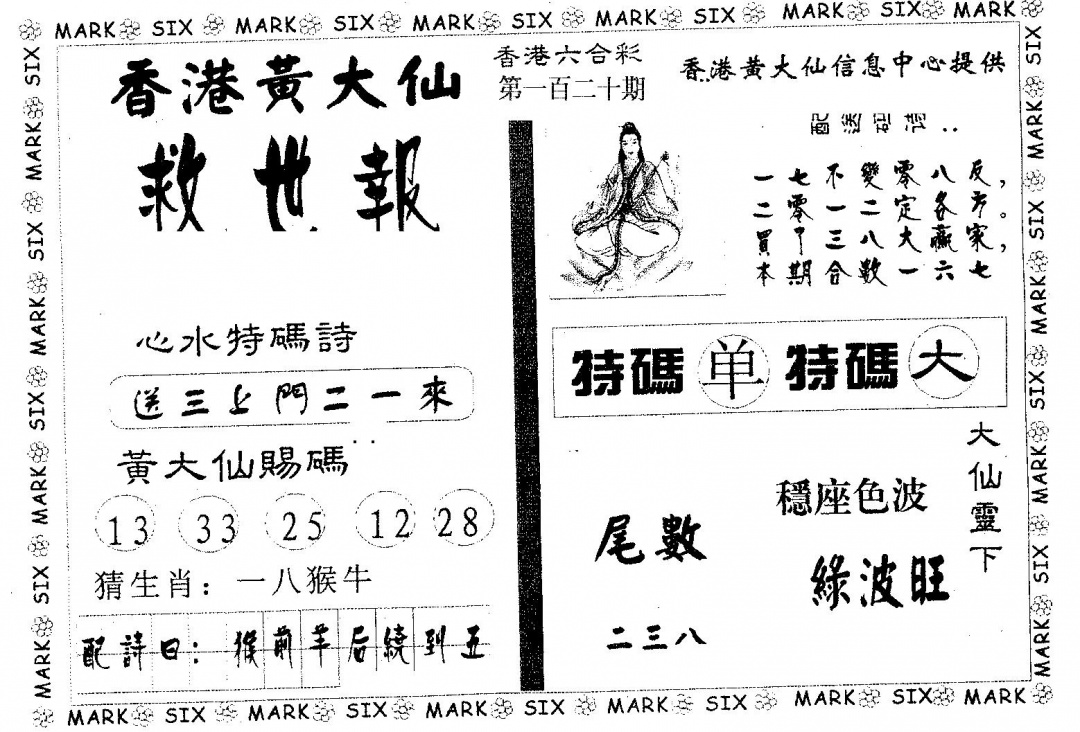 MARK SIX MARK SIX MARK SIX MARK SIX MARK SIX MARK
香港黃大仙
救世報
心水特碼詩
送三上門二一來
黃大仙賜碼
13 33 25 12 28
猜生肖：一八猴牛
配詩曰：猴前羊后繞到五
香港六合彩
第一百二十期
香港黃大仙信息中心提供
配送
一七不變零八反，
二零一二定各。
買中三八大贏家，
本期合數一六七
特碼 单 特碼 大
尾數
二三八
大仙靈下
穩座色波
綠波旺
SIX MARK SIX MARK SIX MARK SIX MARK SIX MARK SIX MARK
SIX MARK SIX MARK SIX MARK SIX MARK SIX MARK
MARK SIX MARK SIX MARK SIX MARK SIX MARK SIX MARK